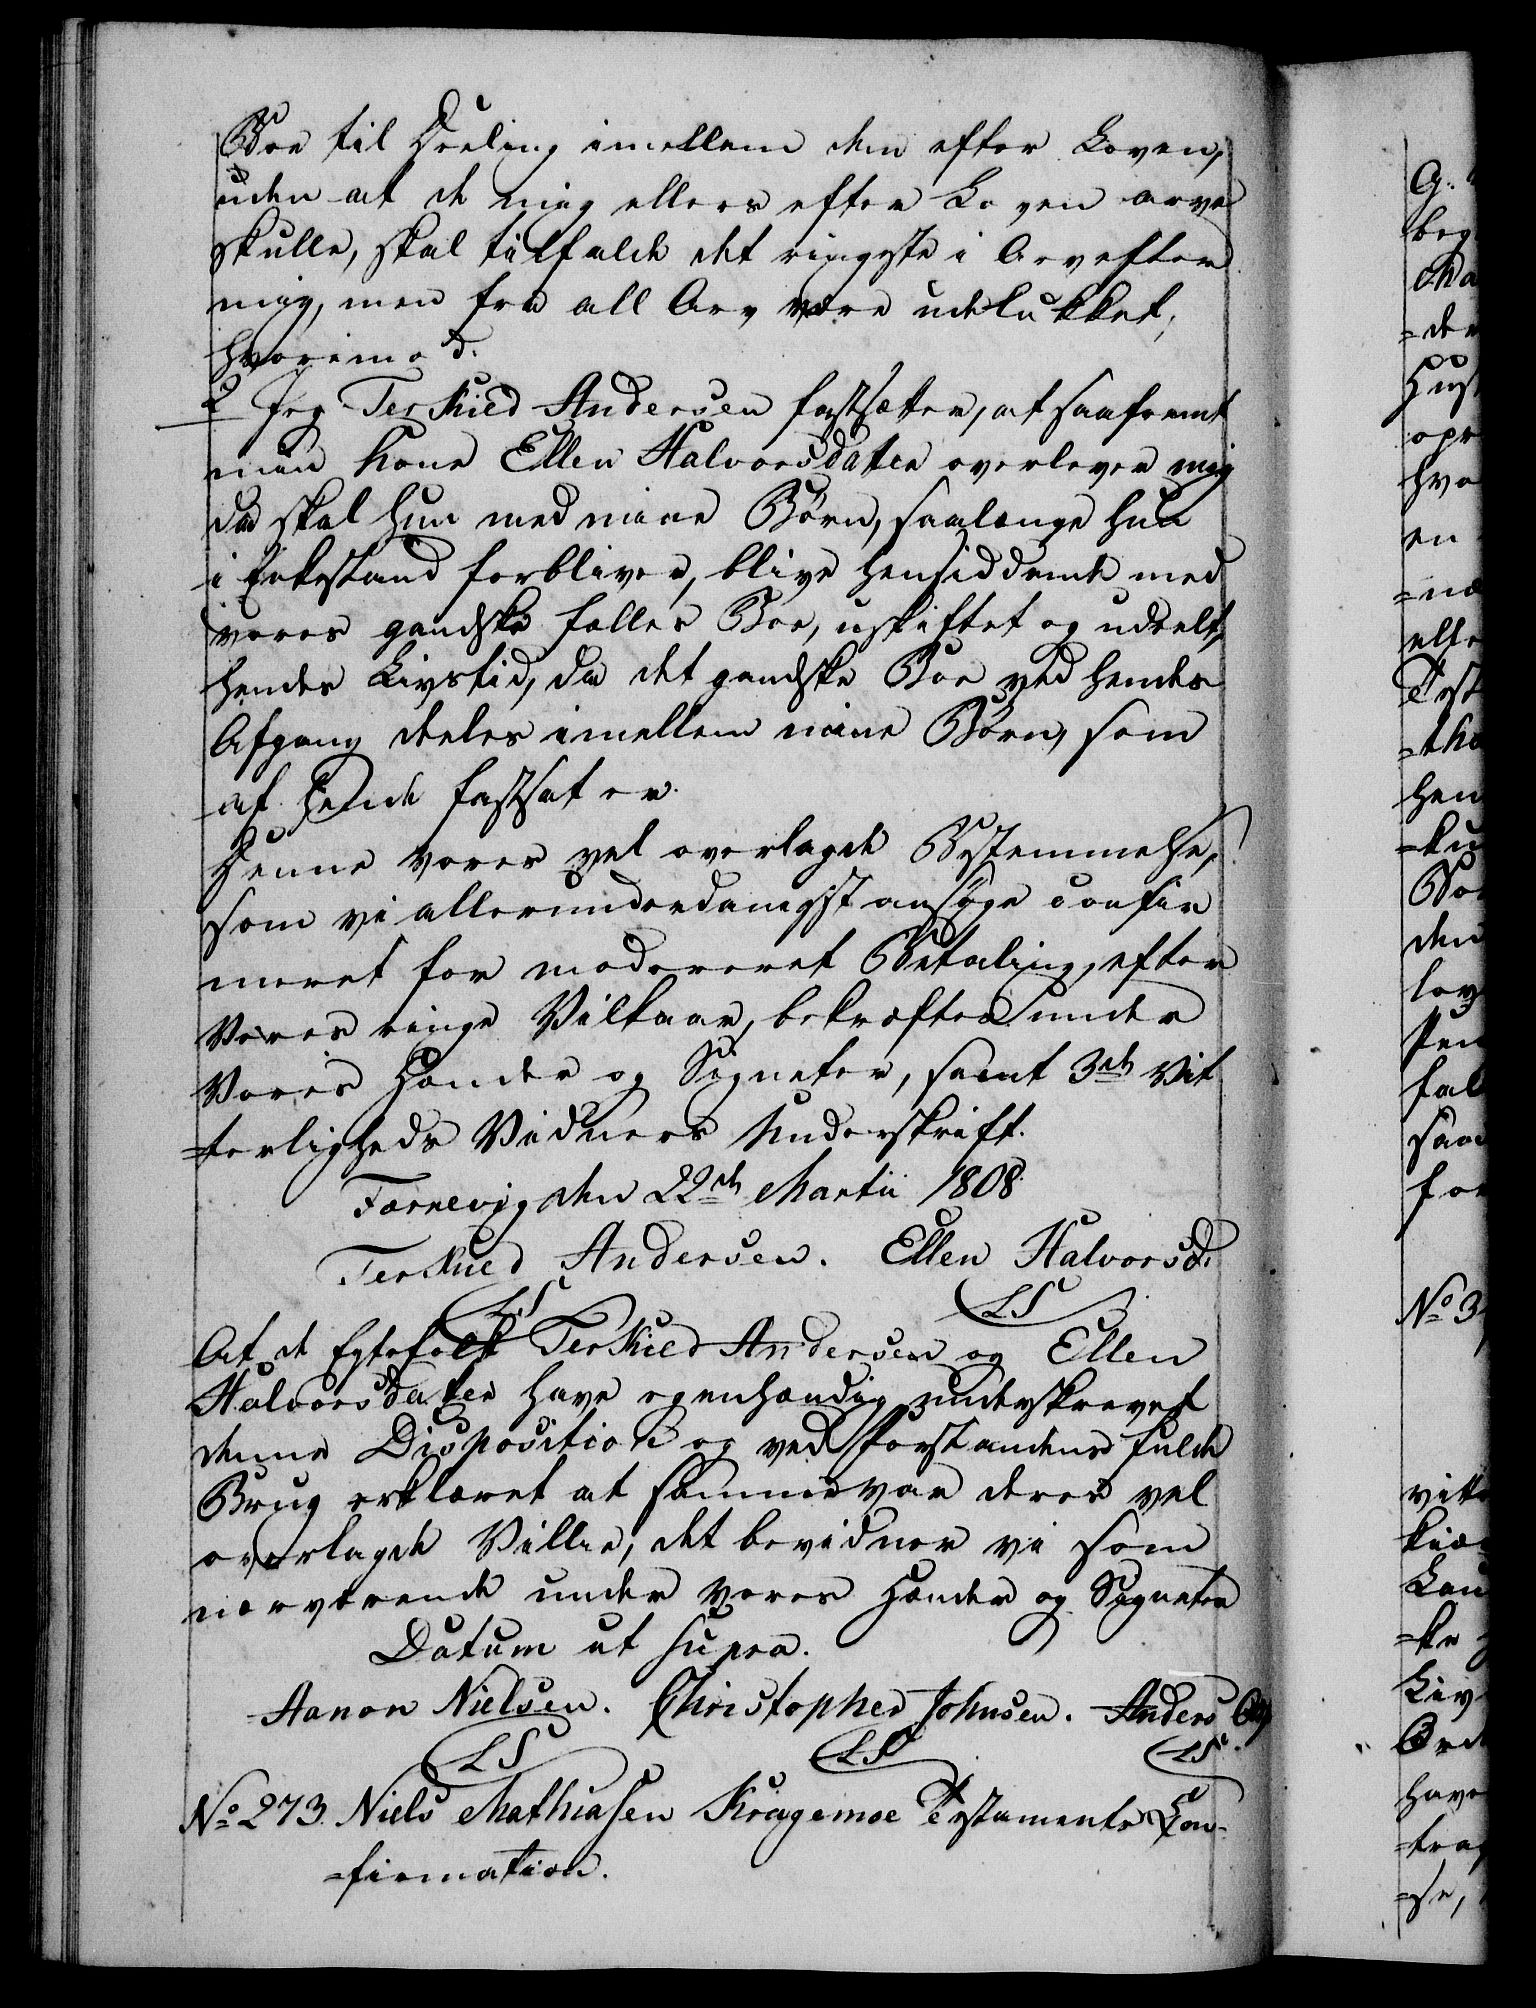 Boe til Deeling imellem dem efter Loven,
uden at de mig ellers efter Loven arve
skulle, skal tilfalde det ringeste i Arv efter
mig, men fra all Arv være udelukket;
hvorimod.
2 Jeg Terkield Andersen fastsætter, at saafremt
min Kone Ellen Halvorsdatter overlever mig
da skal hun med mine Børn, saalænge hun
i Enkestand forbliver, blive hensiddende med
vores gandske fælles Boe, uskiftet og udeelt,
hendes Livstid, da det gandske Boe ved hendes
Afgang deeles imellem mine Børn, som
af hende fastsat er.
Denne vores vel overlagde Bestemmelse,
som vi allerunderdanigst ansøge confir
meret for modereret Betaling, efter
Vores ringe Vilkaar, bekræftes under
Vores Hænder og Signeter, samt 3de Vit
=terligheds Vidners Underskrift.
Færrevig den 22de Martii 1808.
Terkield Andersen. Ellen Halvorsd.
LS LS
At de Egtefolk Terkield Andersen og Ellen
Halvorsdatter have egenhændig underskrevet
denne Disposition og ved Forstandens fulde
Brug erklæret at samme var deres vel
overlagde Villie, det bevidner vi som
nærværende under vores Hænder og Signeter
Datum ut supra.
Aanon Nielsen. Christopher Johnsen. Anders
LS LS LS.
No 273. Niels Mathiasen Kragemoe Testaments Con=
=firmation.